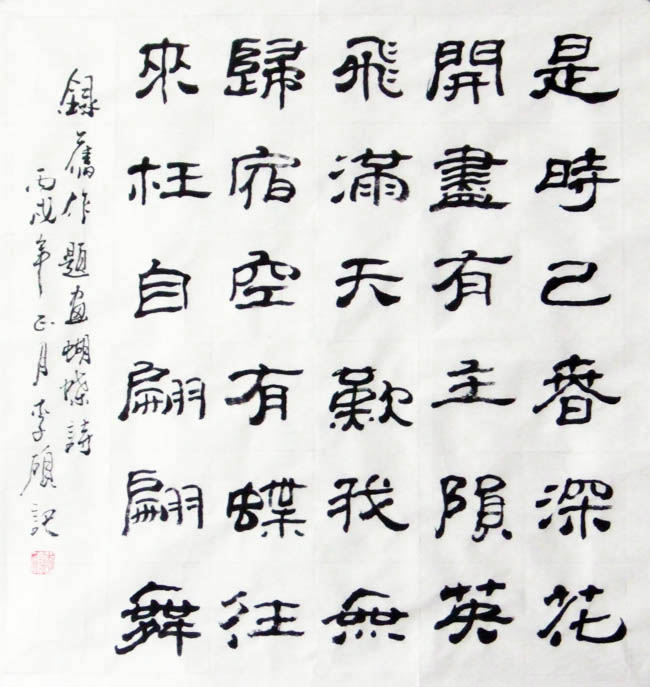 是時已春深花
開盡有主隕英
飛滿天歎我無
歸宿空有蝶往
來枉自翩翩舞
錄舊作題畫蝴蝶詩
丙戌年正月李碩記